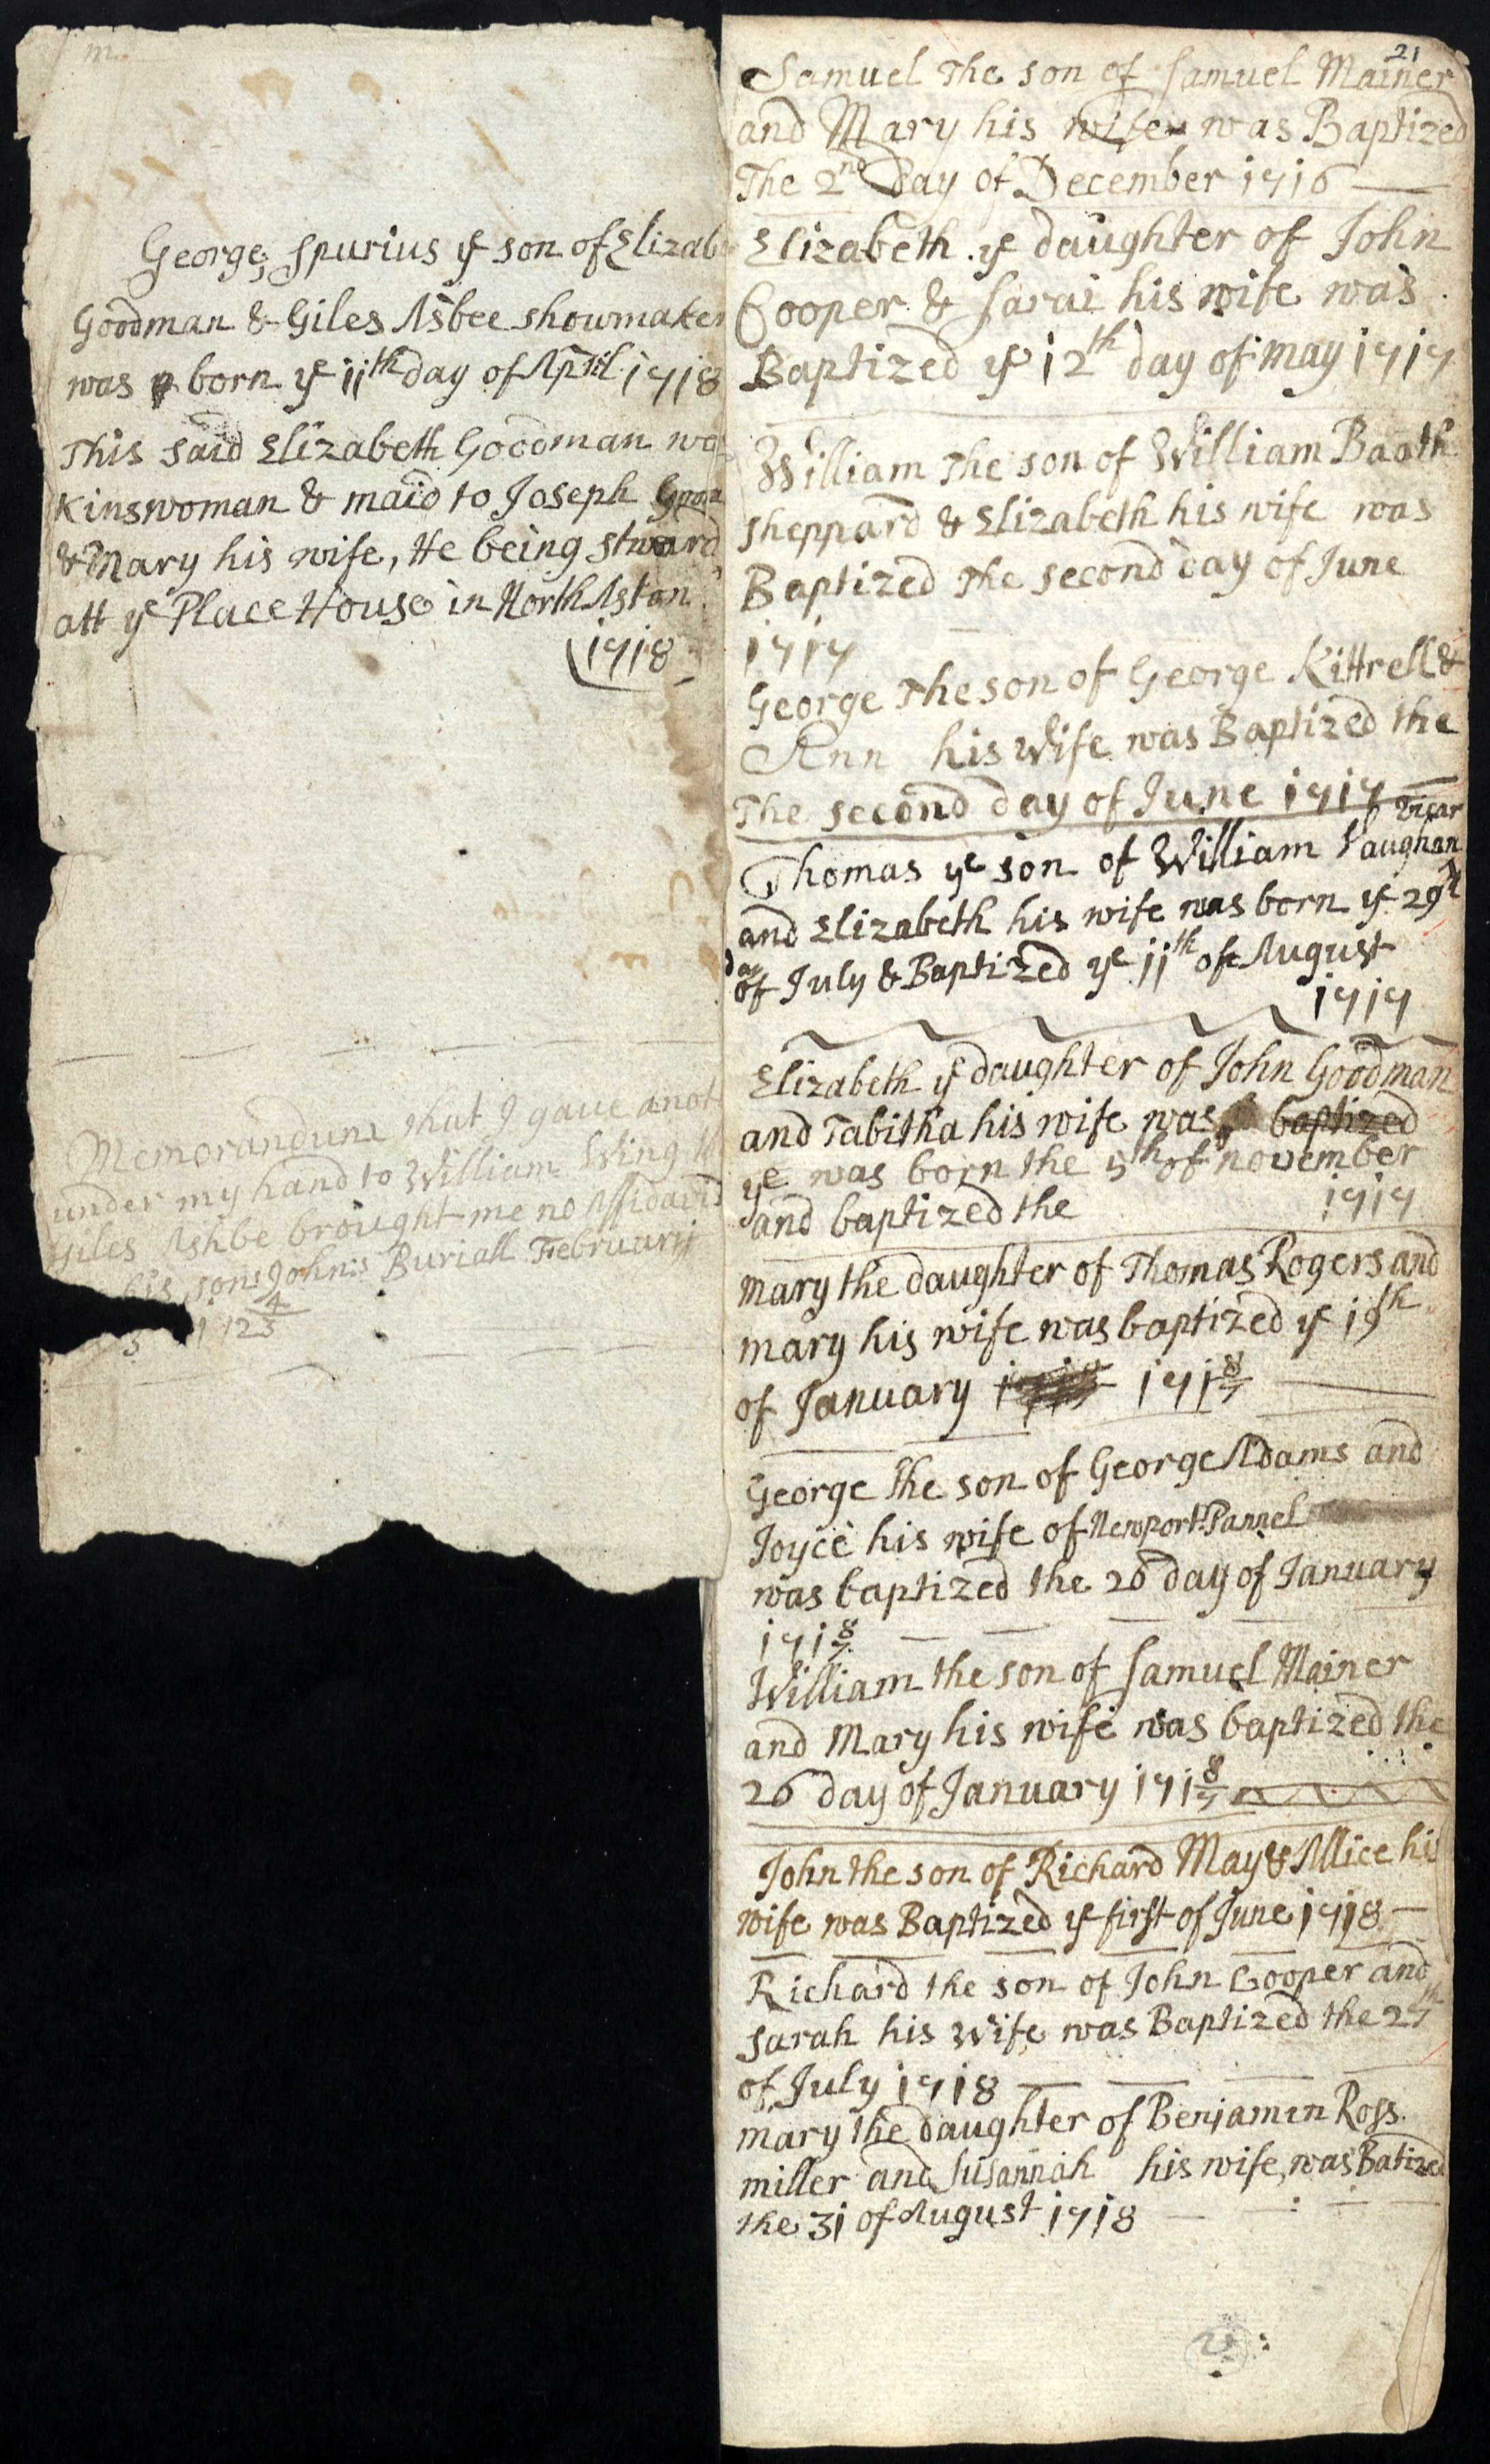 George, spurius ye son of Elizab
Goodman & Giles Asbee showmaker
was born ye 11th day of April 1718
This said Elizabeth Goodman wa
Kinswoman & maid to Joseph
& Mary his wife, He being stward
att ye Place House in North Aston
1718
Memorandum that I gave anot
under my hand to William Wing
Giles Ashbe brought me no Affidavid
his son John's Buriall Februarij
21
Samuel The son of Samuel Mainer
and Mary his wife was Baptized
The 2nd Day of December 1716
Elizabeth ye daughter of John
Cooper & Sarai his wife was
Baptized ye 12th day of may 1717
William The son of William Baath
sheppard & Elizabeth his wife was
Baptized The second day of June
1717
George The son of George Kittrell &
Ann his Wife was Baptized the
The second day of June 1717
Vicar
Thomas ye son of William Vaughan
and Elizabeth his wife was born ye 29th
day
of July & Baptized ye 11th of August
1717
Elizabeth ye daughter of John Goodman
and Tabitha his wife was baptized
ye was born the 5th of november
and baptized the 1717
mary the daughter of Thomas Rogers and
mary his wife was baptized ye 19th
of January 171 8/7
George the son of George Adams and
Joyce his wife of Newport Pannel
was baptized the 26 day of January
171 8/7
William the son of Samuel Mainer
and Mary his wife was baptized the
26 day of January 171 8/7
John the son of Richard May & Allice his
wife was Baptized ye first of June 1718
Richard the son of John Cooper and
Sarah his Wife was Baptized the 27th
of July 1718
mary the daughter of Benjamin Ross
miller and Susannah his wife, was Batized
the 31 of August 1718